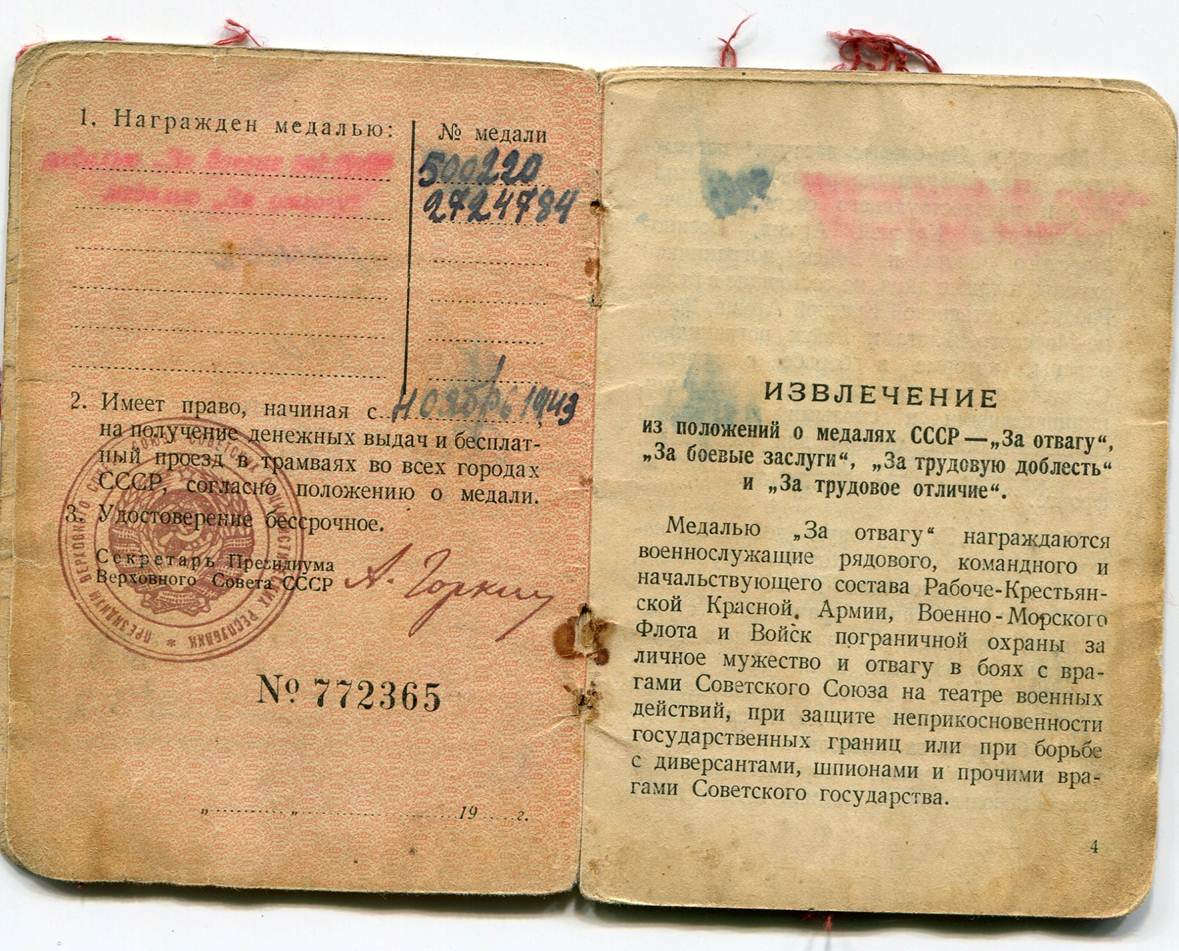 1. Награжден медалью:
№ медали
500220
2724784
2. Имеет право, начиная с ноябрь 1943
на получение денежных выдач и бесплат-
ный проезд в трамваях во всех городах
СССР, согласно положению о медали.
3. Удостоверение бессрочное.
Секретарь Президиума
Верховного Совета СССР
А. Горкин
№ 772365
„ “ 19 г.
ИЗВЛЕЧЕНИЕ
из положений о медалях СССР—„За отвагу“,
„За боевые заслуги“, „За трудовую доблесть“
и „За трудовое отличие“.
Медалью „За отвагу“ награждаются
военнослужащие рядового, командного и
начальствующего состава Рабоче-Крестьян-
ской Красной Армии, Военно-Морского
Флота и Войск пограничной охраны за
личное мужество и отвагу в боях с вра-
гами Советского Союза на театре военных
действий, при защите неприкосновенности
государственных границ или при борьбе
с диверсантами, шпионами и прочими вра-
гами Советского государства.
4